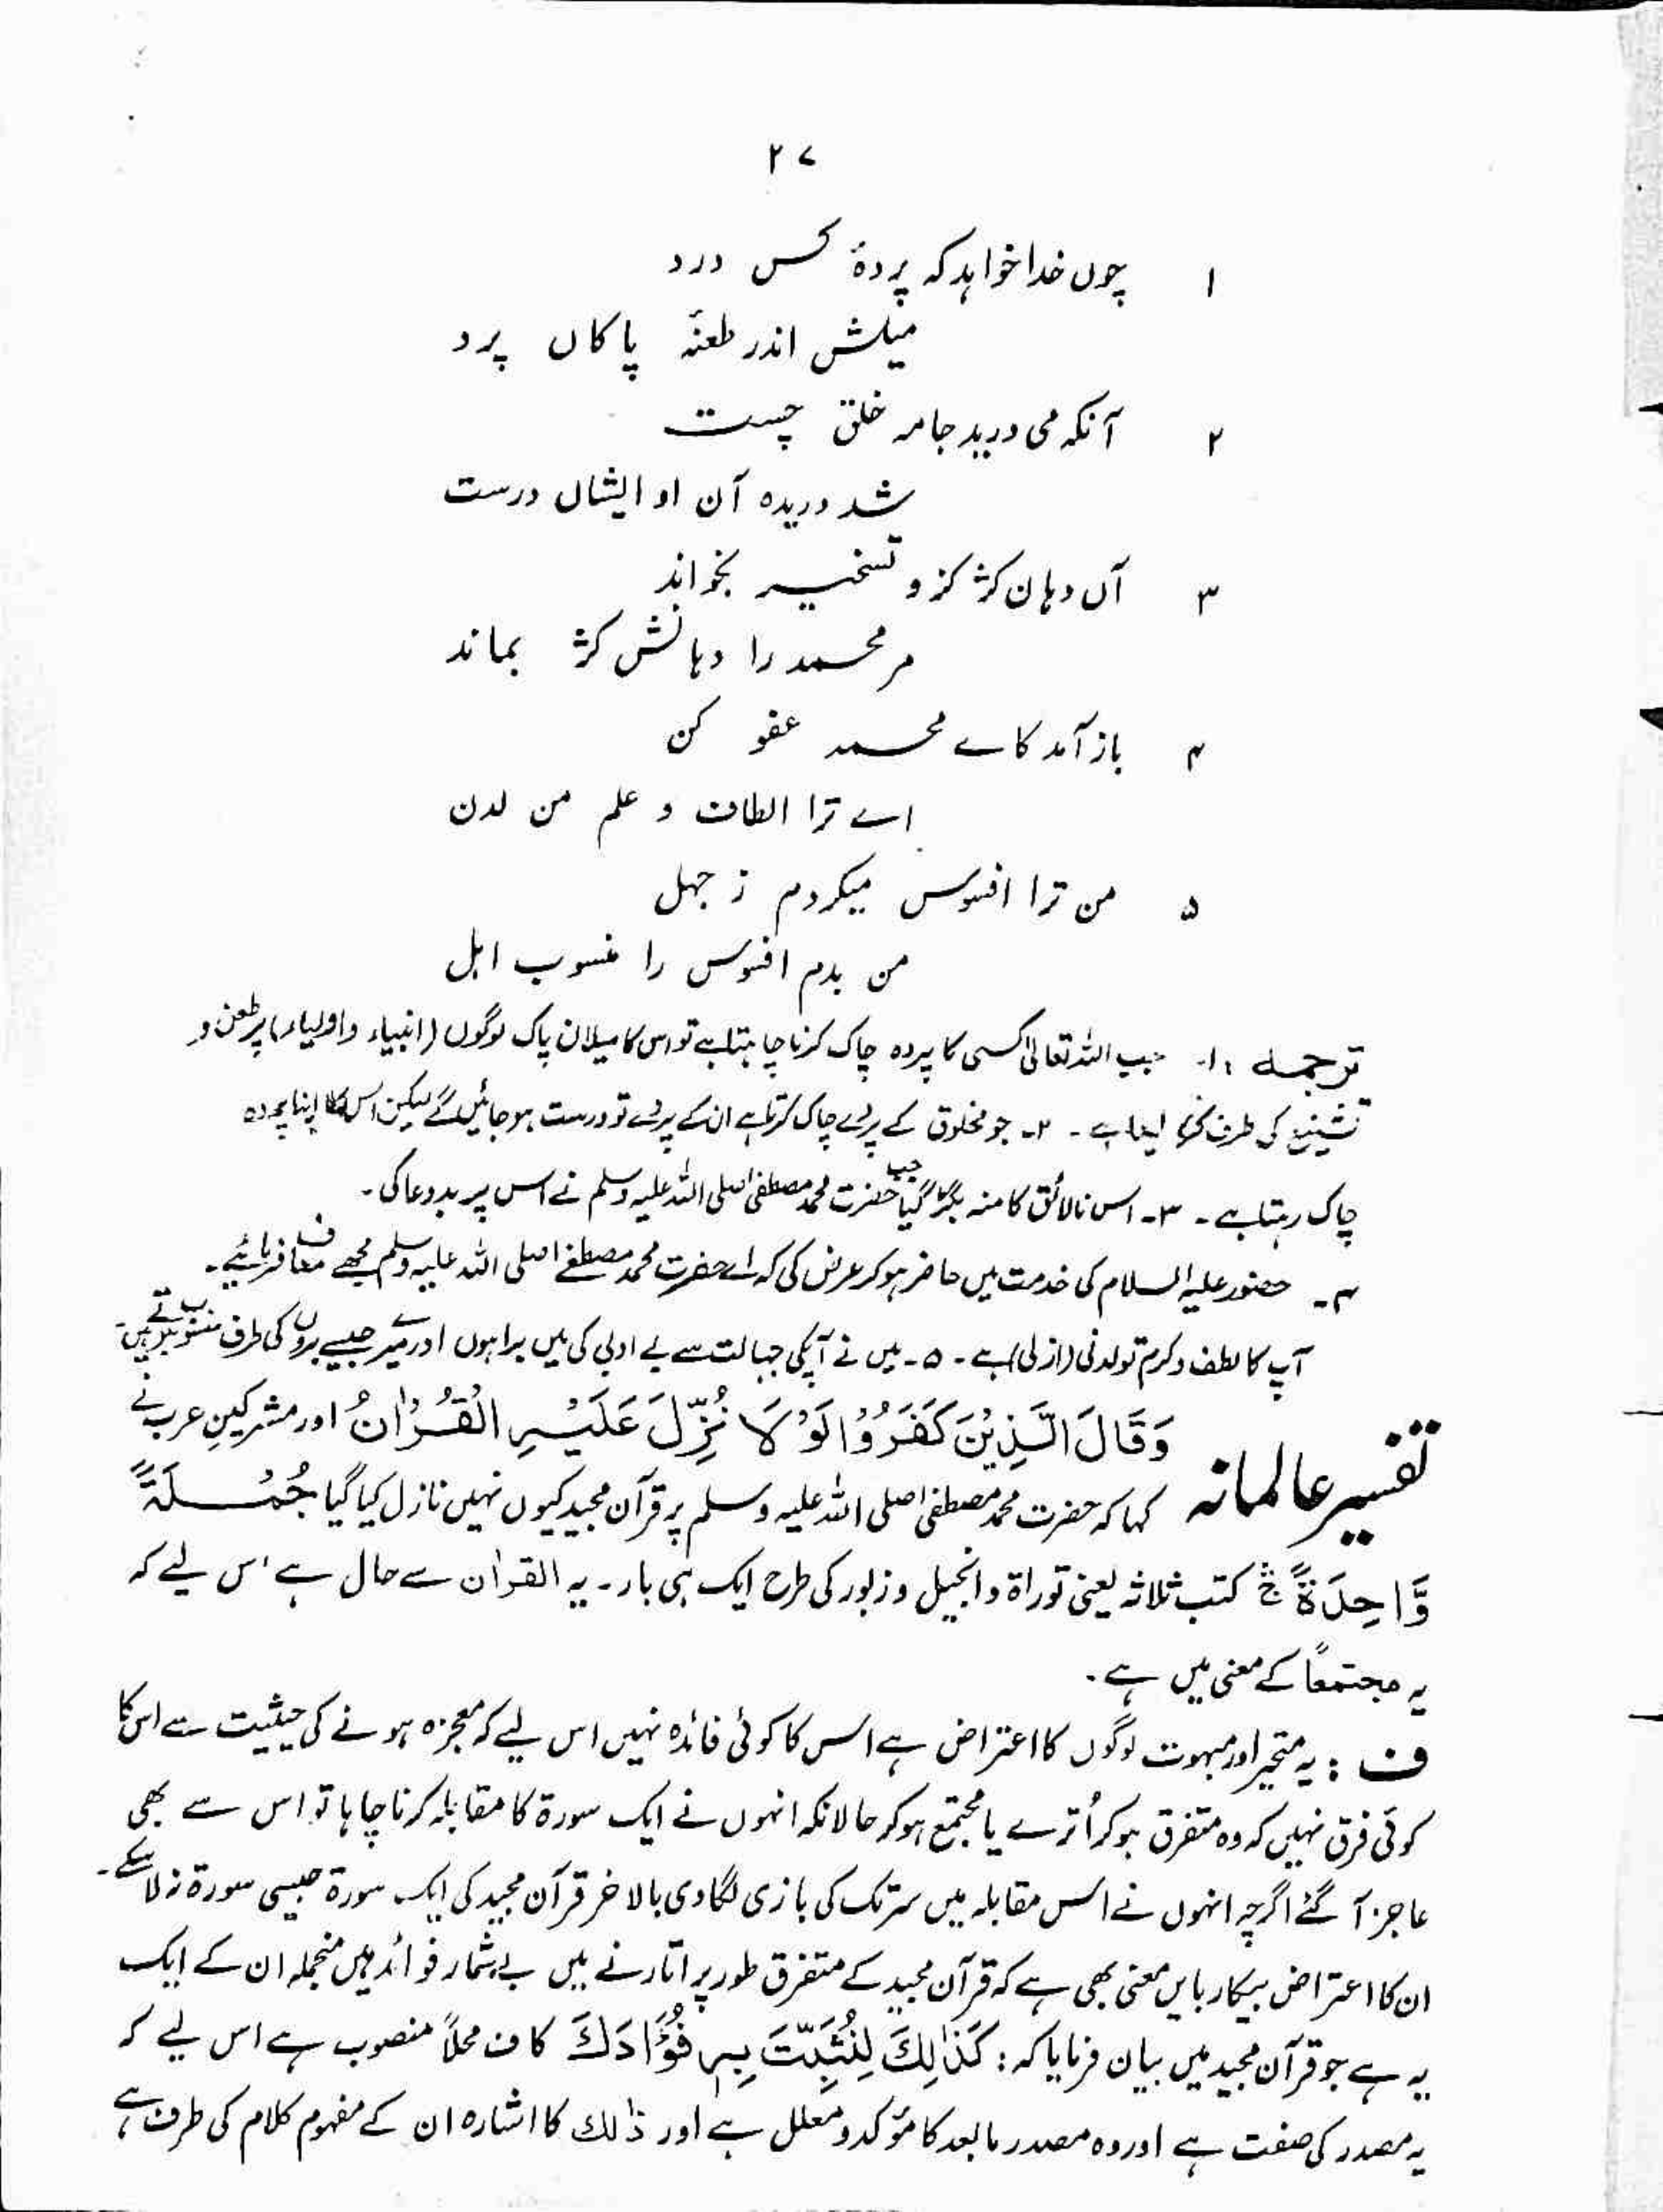 ۲۷
۱ چوں خدا خواہد کہ پردۂ کس درد
میلش اندر طعنۂ پاکاں پرد
۲ آنکہ می درید جامہ خلق چست
شد دریدہ آن او ایشاں درست
۳ آں دہان کژ کزو تسخیر بخواند
مر محمد را دہانش کژ بماند
۴ باز آمد کاے محمد عفو کن
اے ترا الطاف و علم من لدن
۵ من ترا افسوس میکردم ز جہل
من بدم افسوس را منسوب اہل
ترجمہ :۱۔ جب اللہ تعالیٰ کسی کا پردہ چاک کرنا چاہتا ہے تو اس کا میلان پاک لوگوں (انبیاء و اولیاء) پر طعن و
تشنیع کی طرف لیتا ہے ۔ ۲۔ جو مخلوق کے پردے چاک کرتا ہے ان کے پردے تو درست ہو جائیں گے لیکن اس کا اپنا پردہ
چاک رہتا ہے ۔ ۳۔ اس نالائق کا منہ بگڑ گیا جب حضرت محمد مصطفیٰ صلی اللہ علیہ وسلم نے اس پر بددعا کی ۔
۴۔ حضور علیہ السلام کی خدمت میں حاضر ہو کر عرض کی کہ اے حضرت محمد مصطفےٰ صلی اللہ علیہ وسلم مجھے معاف فرمائیے ۔
آپ کا لطف و کرم تو لدنی (ازلی) ہے ۔ ۵۔ میں نے آپکی جہالت سے بے ادبی کی میں برا ہوں اور میرے جیسے بروں کی طرف منسوب ہوتے ہیں ۔
تفسیر عالمانہ وَقَالَ الَّذِیْنَ کَفَرُوْا لَوْ لَا نُزِّلَ عَلَیْہِ الْقُرْاٰنُ اور مشرکینِ عرب نے
کہا کہ حضرت محمد مصطفیٰ صلی اللہ علیہ وسلم پر قرآن مجید کیوں نہیں نازل کیا گیا جُمْلَۃً
وَّاحِدَۃً ۚ کتب ثلاثہ یعنی توراۃ و انجیل و زبور کی طرح ایک ہی بار ۔ یہ القراٰن سے حال ہے اس لیے کہ
یہ مجتمعًا کے معنی میں ہے ۔
ف : یہ متحیر اور مبہوت لوگوں کا اعتراض ہے اس کا کوئی فائدہ نہیں اس لیے کہ معجزہ ہونے کی حیثیت سے اس کا
کوئی فرق نہیں کہ وہ متفرق ہو کر اُترے یا مجتمع ہو کر حالانکہ انہوں نے ایک سورۃ کا مقابلہ کرنا چاہا تو اس سے بھی
عاجز آ گئے اگرچہ انہوں نے اس مقابلہ میں سر تک کی بازی لگا دی بالآخر قرآن مجید کی ایک سورۃ جیسی سورۃ نہ لا سکے ۔
ان کا اعتراض بیکار بایں معنی بھی ہے کہ قرآن مجید کے متفرق طور پر اتارنے میں بے شمار فوائد ہیں منجملہ ان کے ایک
یہ ہے جو قرآن مجید میں بیان فرمایا کہ : کَذٰلِکَ لِنُثَبِّتَ بِہٖ فُؤَادَکَ کاف محلاً منصوب ہے اس لیے کہ
یہ مصدر کی صفت ہے اور وہ مصدر مابعد کا مؤکد و معلل ہے اور ذٰلک کا اشارہ ان کے مفہوم کلام کی طرف ہے ،